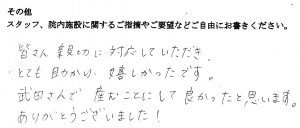 その他
スタッフ、院内施設に関するご指摘やご要望などご自由にお書きください。
皆さん親切に対応していただき、
とても助かり、嬉しかったです。
武田さんで産むことにして良かったと思います。
ありがとうございました！